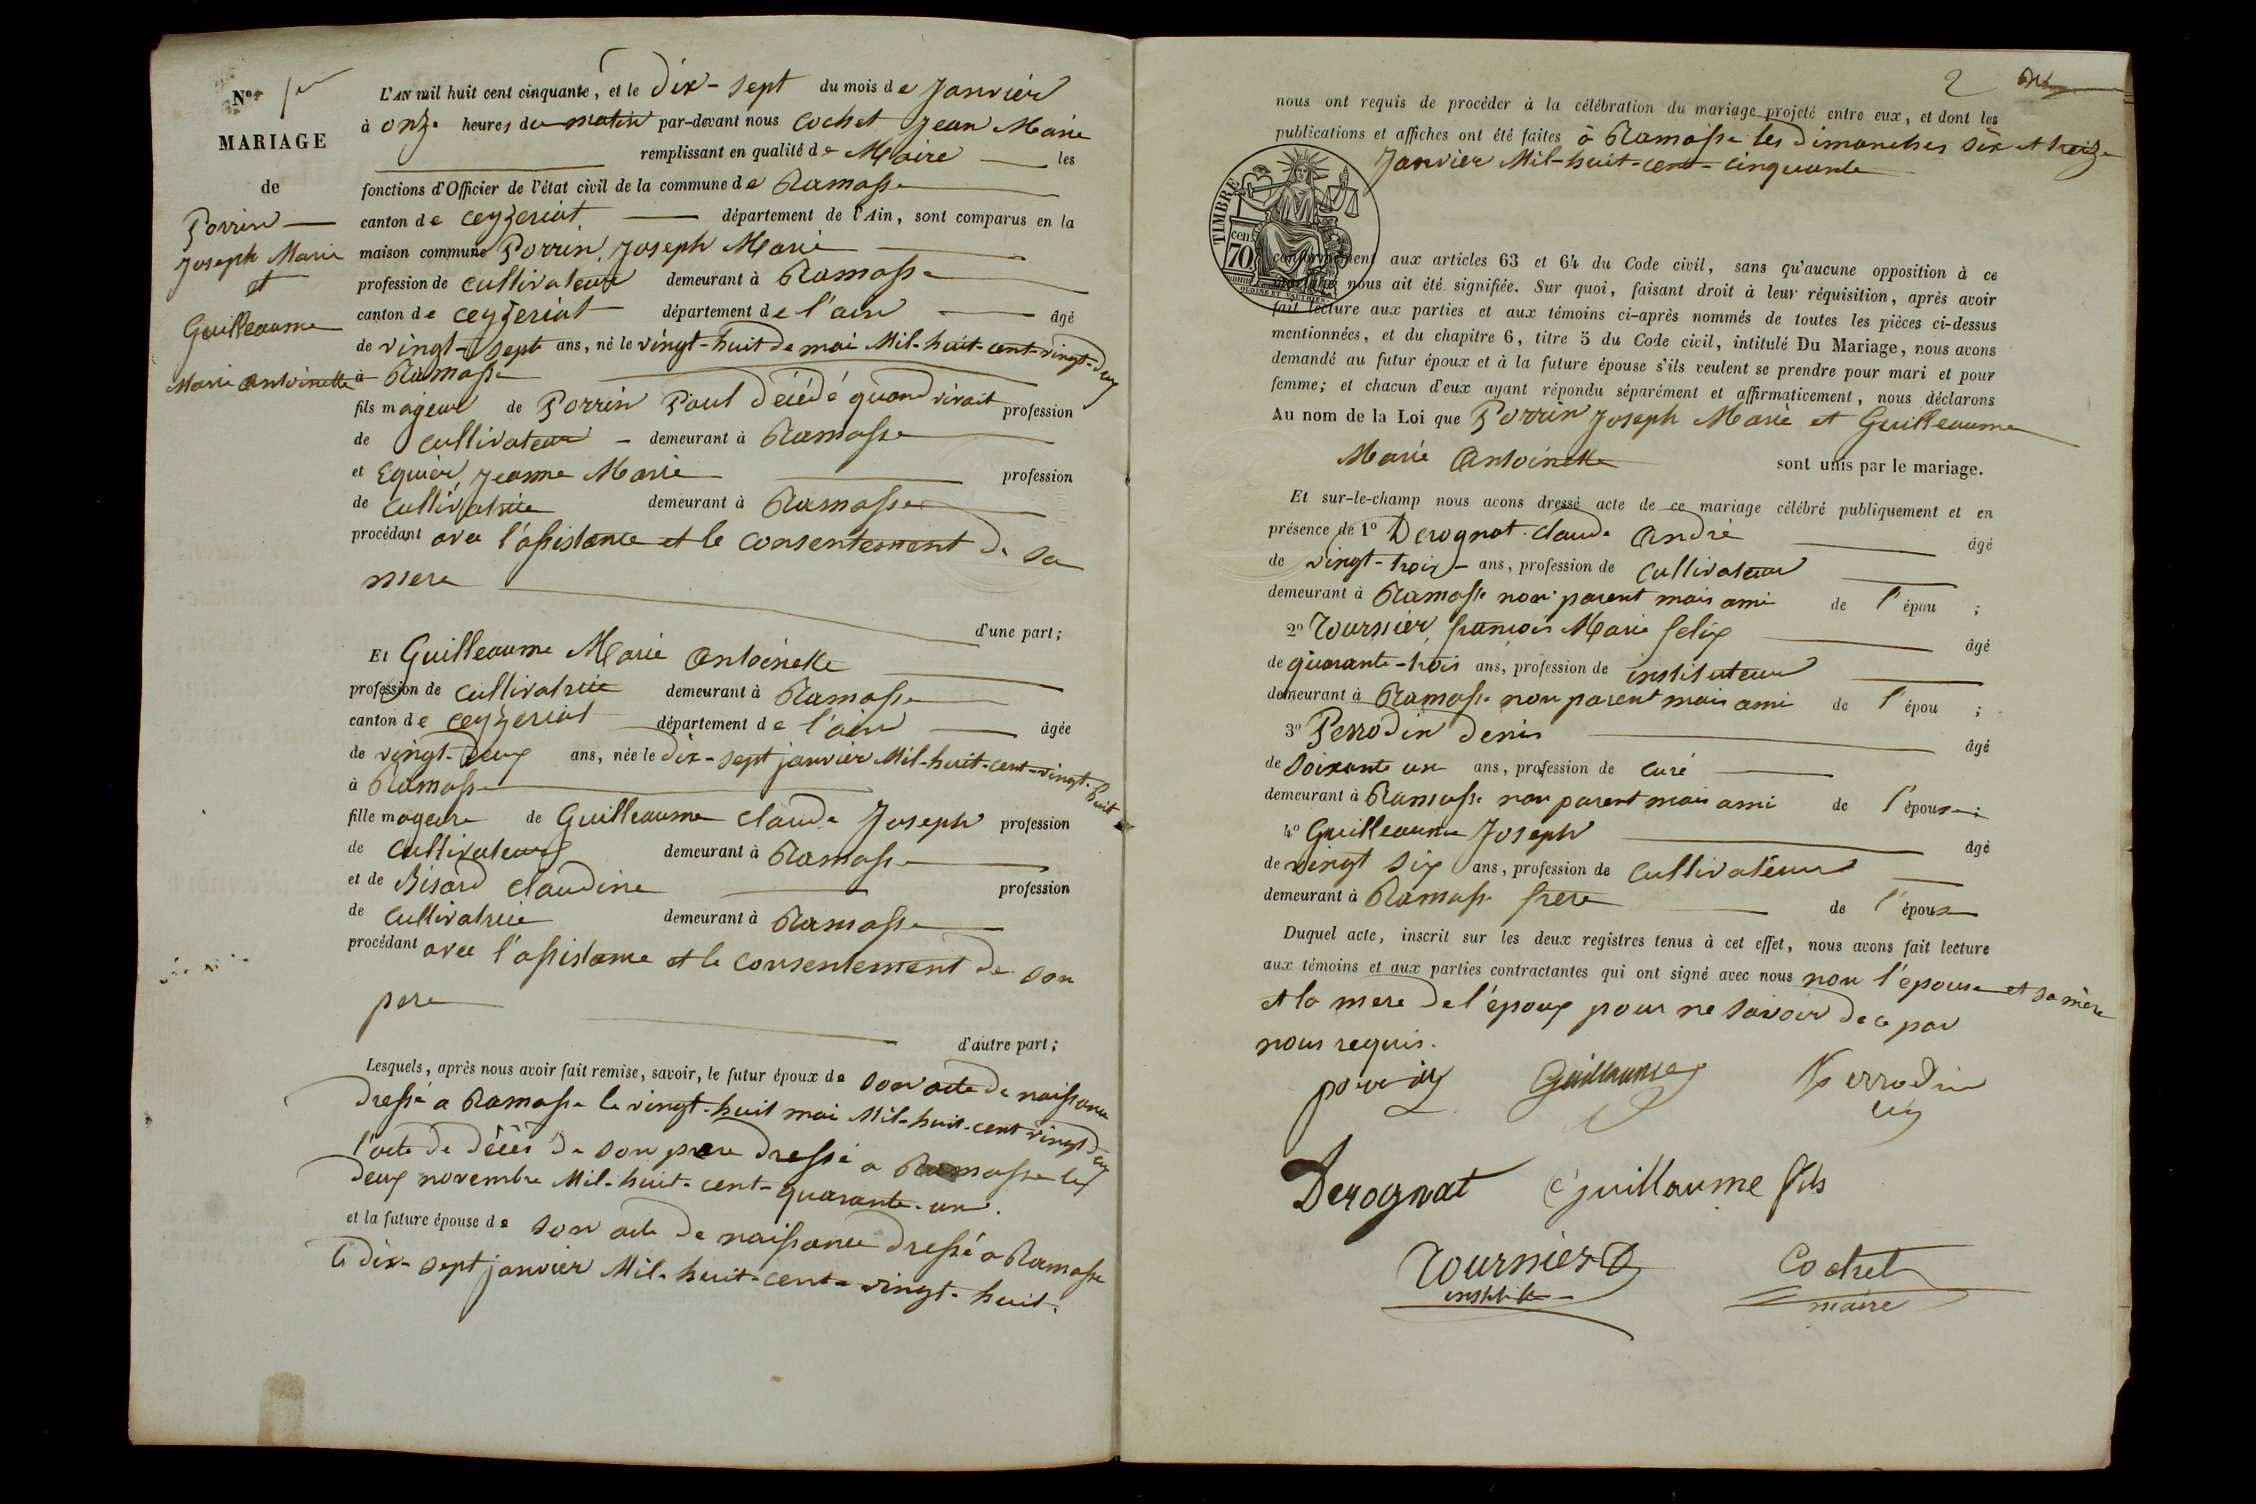 N° 1er
MARIAGE
de
Porrin
Joseph Marie
et
Guilleaume
Marie Antoinette
L'AN mil huit cent cinquante, et le dix-sept du mois de Janvier
à onze heures du matin par-devant nous Cochet Jean Marie
remplissant en qualité de Maire les
fonctions d'Officier de l'état civil de la commune de Ramasse
canton de ceyzeriat département de l'Ain, sont comparus en la
maison commune Porrin, Joseph Marie
profession de cultivateur demeurant à Ramasse
canton de ceyzeriat département de l'ain âgé
de vingt-sept ans, né le vingt-huit de mai Mil-huit-cent-vingt-deux
à Ramasse
fils majeur de Porrin Paul décédé quand vivait profession
de cultivateur - demeurant à Ramasse
et Equier, Jeanne Marie profession
de cultivatrice demeurant à Ramasse
procédant avec l'assistance et le consentement de sa
mere
d'une part;
Et Guilleaume Marie Antoinette
profession de cultivatrice demeurant à Ramasse
canton de ceyzeriat département de l'ain âgée
de vingt-deux ans, née le dix-sept janvier Mil-huit-cent-vingt-huit
à Ramasse
fille mageure de Guilleaume Claude Joseph profession
de cultivateur demeurant à Ramasse
et de Bisard Claudine profession
de cultivatrice demeurant à Ramasse
procédant avec l'assistance et le consentement de son
pere
d'autre part;
Lesquels, après nous avoir fait remise, savoir, le futur époux de son acte de naissance
dressé a Ramasse le vingt-huit mai Mil-huit-cent vingt deux
l'acte de décès de son pere dressé a Ramasse le
deux novembre Mil-huit-cent-quarante-un.
et la future épouse de son acte de naissance dressé a Ramasse
le dix-sept janvier Mil-huit-cent-vingt-huit.
2
nous ont requis de procéder à la célébration du mariage projeté entre eux, et dont les
publications et affiches ont été faites à Ramasse les dimanches six et treize
Janvier Mil-huit-cent-cinquante
TIMBRE
cen.
70
conformément aux articles 63 et 64 du Code civil, sans qu'aucune opposition à ce
mariage nous ait été signifiée. Sur quoi, faisant droit à leur réquisition, après avoir
fait lecture aux parties et aux témoins ci-après nommés de toutes les pièces ci-dessus
mentionnées, et du chapitre 6, titre 5 du Code civil, intitulé Du Mariage, nous avons
demandé au futur époux et à la future épouse s'ils veulent se prendre pour mari et pour
femme; et chacun d'eux ayant répondu séparément et affirmativement, nous déclarons
Au nom de la Loi que Porrin Joseph Marie et Guilleaume
Marie Antoinette sont unis par le mariage.
Et sur-le-champ nous avons dressé acte de ce mariage célébré publiquement et en
présence de 1° Derognat Claude André âgé
de vingt-trois - ans, profession de cultivateur
demeurant à Ramasse non parent mais ami de l'épou ;
2° Tournier, francois Marie felix âgé
de quarante-trois ans, profession de instituteur
demeurant à Ramasse non parent mais ami de l'épou ;
3° Perrodin Denis âgé
de soixante un ans, profession de curé
demeurant à Ramasse non parent mais ami de l'épouse;
4° Guilleaume Joseph âgé
de vingt six ans, profession de cultivateur
demeurant à Ramasse frere de l'épouse
Duquel acte, inscrit sur les deux registres tenus à cet effet, nous avons fait lecture
aux témoins et aux parties contractantes qui ont signé avec nous non l'épouse et sa mère
et la mere de l'époux pour ne savoir de ce par
nous requis.
Guillaume Perrodin
Derognat Guillaume fils
Tournier Cochet
maire